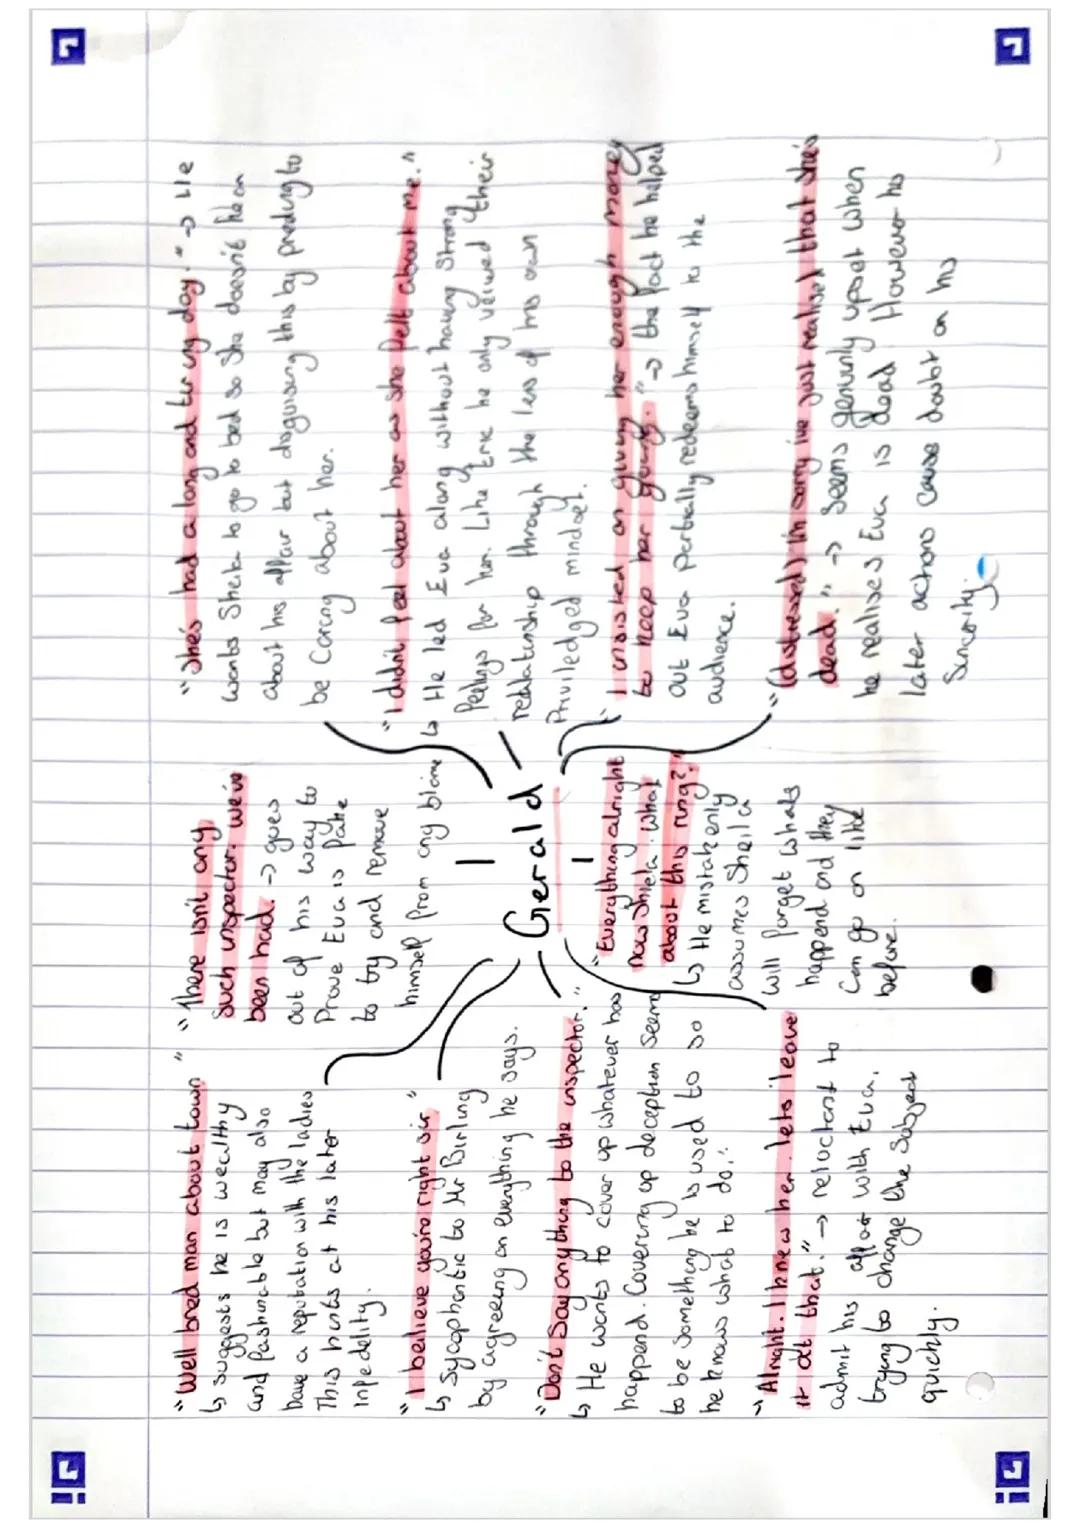 "Well bred man about town"
↳ suggests he is wealthy
and fashinable but may also
have a reputation with the ladies
This hints at his later
infedelity.
"I beilieve you're right sir"
↳ Sycophantic to Mr Birling
by agreeing on everything he says.
"Don't Say anything to the inspector."
↳ He wants to cover up whatever has
happend. Covering up deception seems
to be something he is used to so
he knows what to do.
"Alright. I knew her. lets leave
it at that." → reluctant to
admit his affair with Eva,
trying to change the Subject
quickly.
"There isn't any
such inspector. we've
been had. → goes
out of his way to
Prove Eva is fake
to try and remove
himself from any blame
Gerald
"Everything alright
now Shiela. what
about this ring?"
↳ He mistakenly
assumes Sheila
will forget whats
happend and they
can go on like
before.
"She's had a long and tiring day." → He
wants Sheila to go to bed so She doesn't hear
about his affair but disguising this by preding to
be Caring about her.
"I didn't feel about her as she felt about me."
↳ He led Eva along without having Strong
feelings for her. Like Eric he only veiwed their
realatunship through the lens of his own
Priviledged mindset.
"I insisted on giving her enough money
to keep her going." → the fact he helped
out Eva partially redeems himself to the
audience.
"(distressed) i'm sorry ive just realised that she's
dead." → Seems genuinly upset when
he realises Eva is dead However his
later actions cause doubt on his
Sincerity.